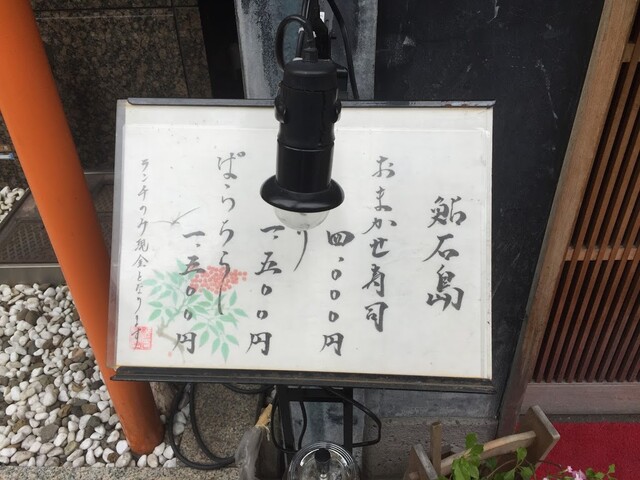 鮨石島
おまかせ寿司
四、〇〇〇円
り
一、五〇〇円
ばらちらし
一、三〇〇円
ランチのみ現金となります